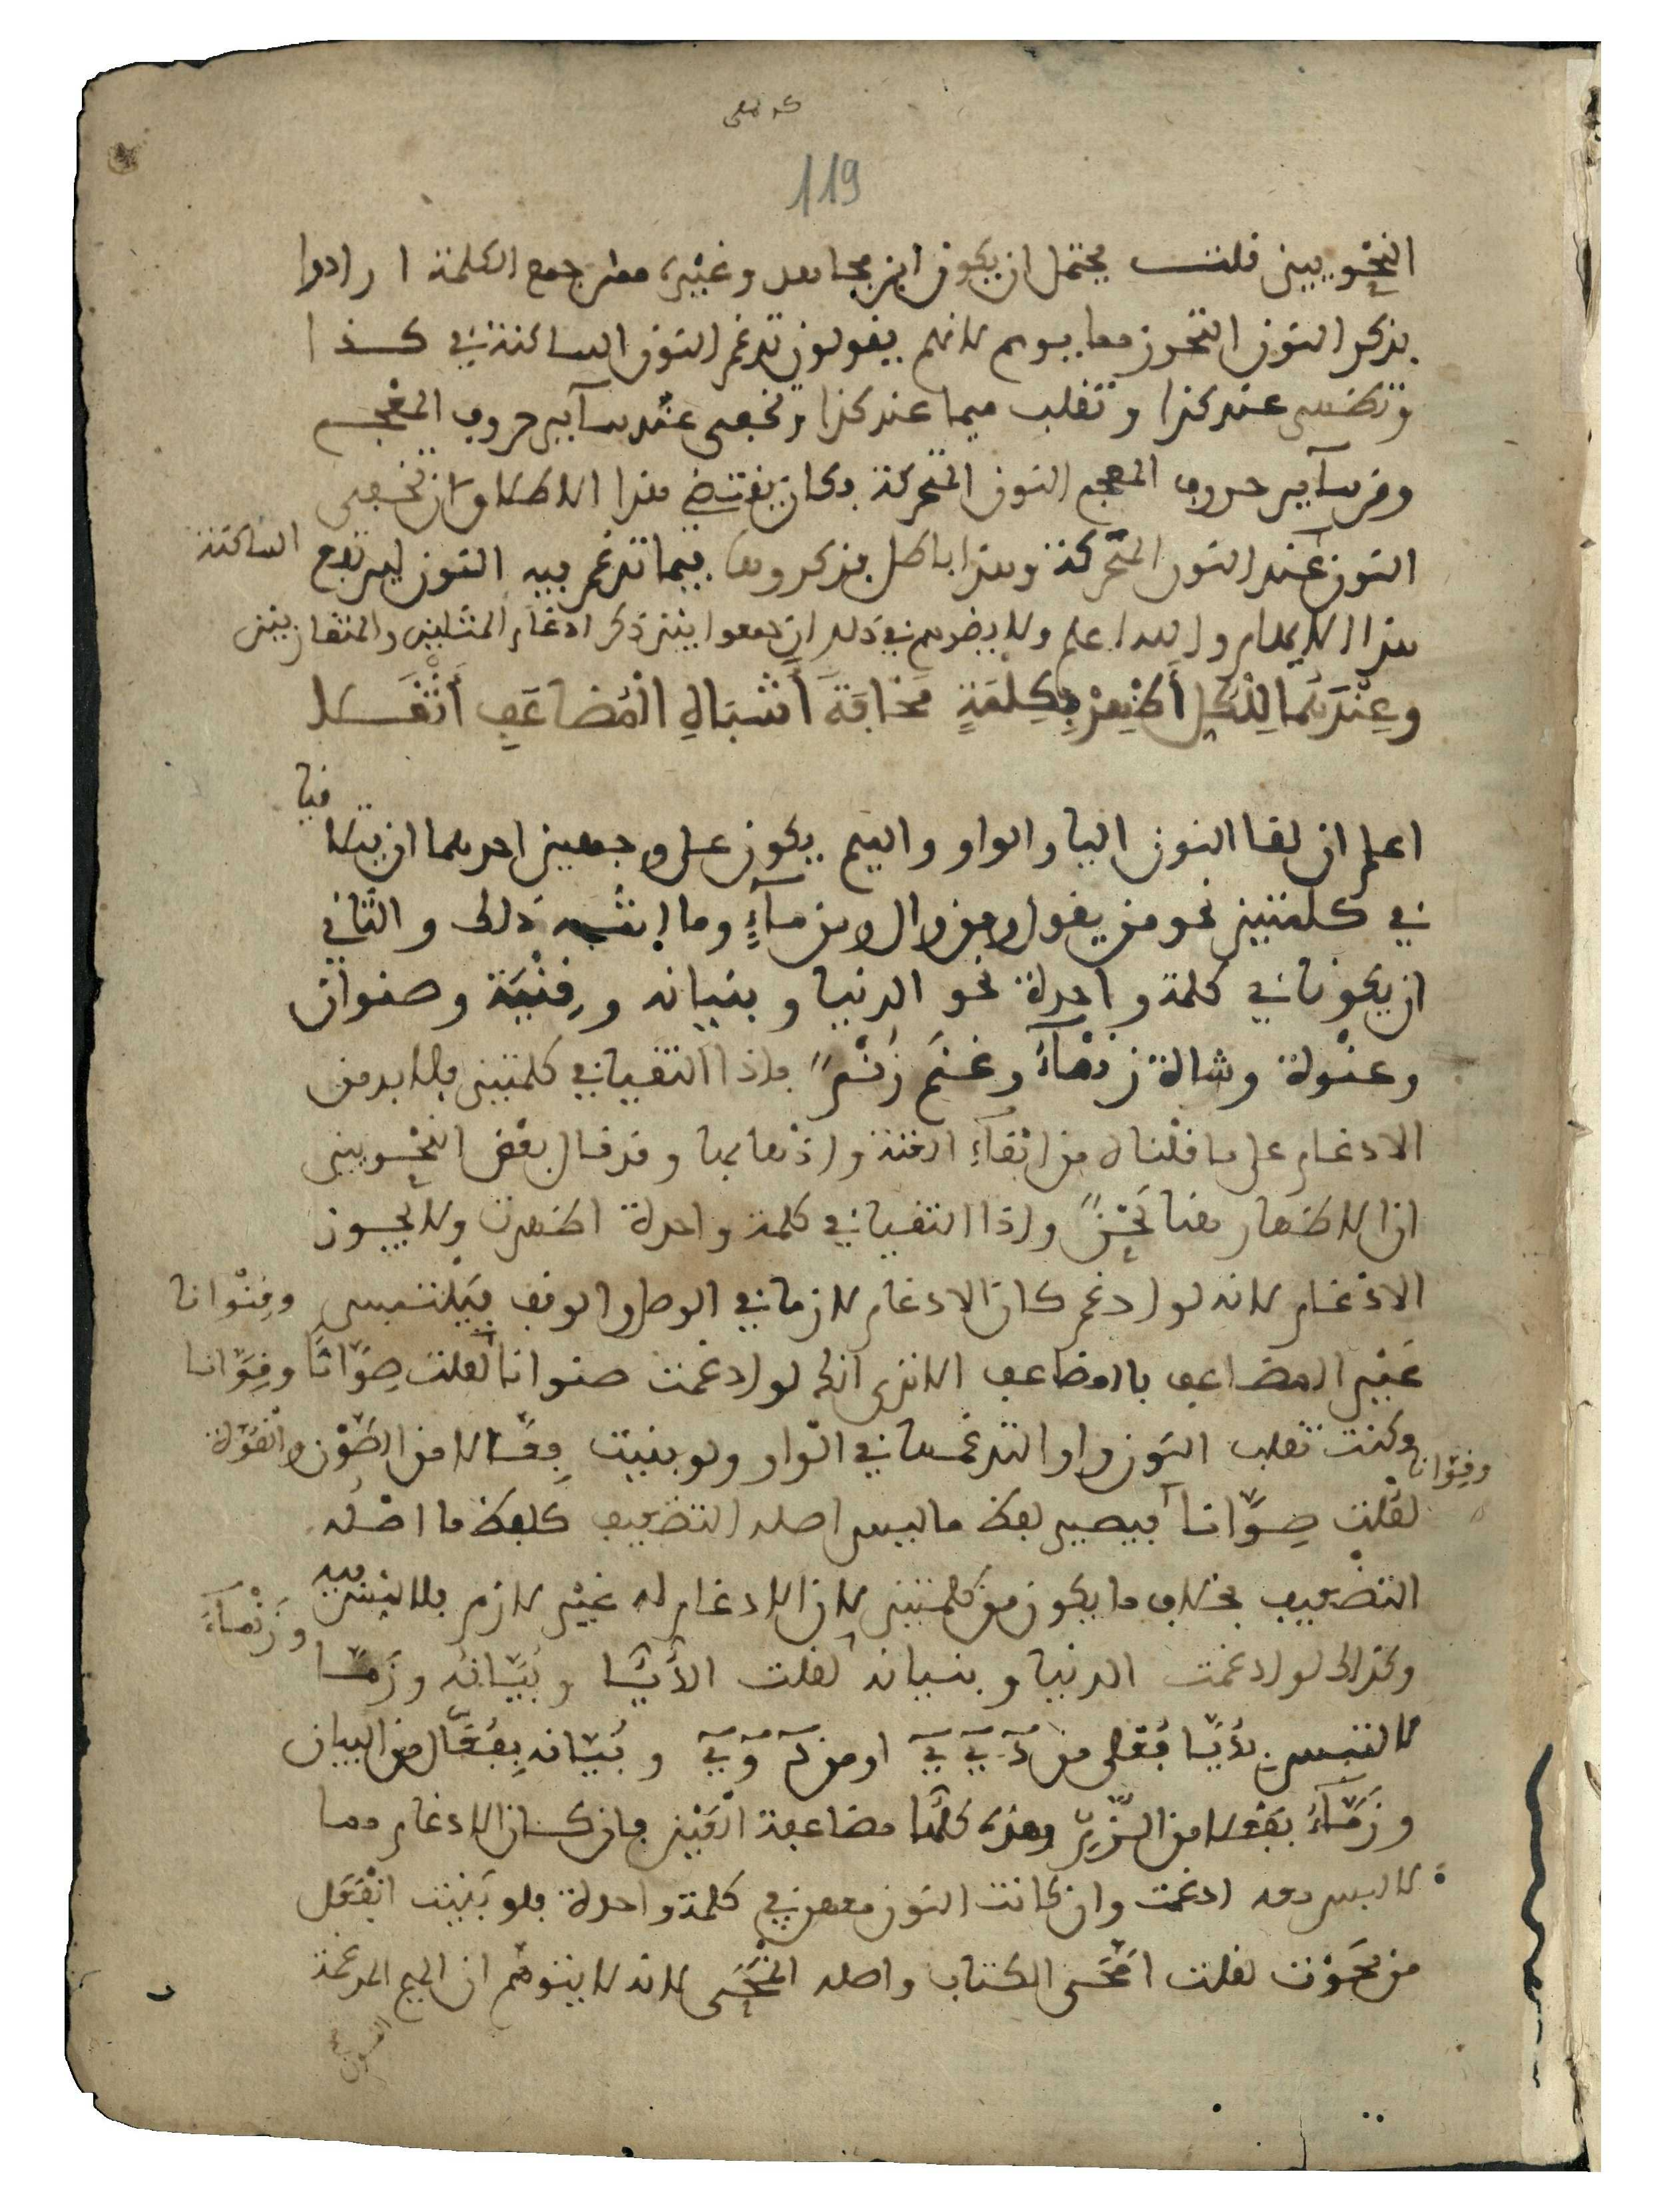 119
النحويين قلت يحتمل ان يكون ابن مجاهد وغيره ممن جمع الكلمة ارادوا
بذكر النون التحرز مما يوهم لانهم يقولون تدغم النون الساكنة في كذا
وتظهر عند كذا وتقلب ميما عند كذا وتخفى عند سآير حروف المعجم
ومن سآير حروف المعجم النون المتحركة فكان يقتضي هذا الاطلاق ان تخفى
النون عند النون المتحركة وهذا باطل فذكروها فيما تدغم فيه النون ليرتفع الساكنة
هذا الايهام والله اعلم ولا يضرهم في ذلك ان جمعوا بين ذكر ادغام المثلين والمتقاربين
وَعِنْدَهُمَا لِلْكُلِّ أَظْهِرْ بِكِلْمَةٍ مَخَافَةَ أَشْبَاهِ الْمُضَاعَفِ أَثْقَلَا
اعلم ان لقا النون اليا والواو والميم يكون على وجهين احدهما ان يتلاقيا
في كلمتين نحو من يقول ومن وال ومن مآءٍ وما اشبه ذلك والثاني
ان يكونا في كلمة واحدة نحو الدنيا وبنيانه وقِنْيَة وصنوان
وعنْوة وشاة زنمآءُ وغنَم زُنْم فاذا التقيا في كلمتين فلا بد من
الادغام على ما قلناه من ابقآءِ الغنة واذهابها وقد قال بعض النحويين
ان الاظهار هنا لحنٌ واذا التقيا في كلمة واحدة اظهرت ولا يجوز
الادغام لانه لو ادغم كان الادغام لازما في الوصل والوقف فيلتبس وقِنْوانا
غير المضاعف بالمضاعف الا ترى انك لو ادغمت صنوانا لقلت صِوَّانًا وقِوَّانا
وقِوّانا وكنت تقلب النون واوا لتدغمها في الواو ولو بنيت فِعَّالا من الصَّوْن والقوّة
لقلت صِوَّانا فيصير لفظ ما ليس اصله التضعيف كلفظ ما اصْلُه
التضعيف بخلاف ما يكون من كلمتين لان الادغام له غير لازم فلا لبس فيه
وكذلك لو ادغمت الدنيا وبنيانه لقلت الدُّيَّا وبُيَّانُه وزمّا وزَنْمآءُ
لالتبس بدُيَّا فُعْلى من دَ يَ يَ او من دَ وَ يَ وبُيّانه بِفُعَّال من البيان
وزَمّآءُ بفَعْلا من الزمّ وهذه كلُّها مضاعفة الْعَيْن فان كان الادغام مما
لا لبس معه ادغمت وان كانت النون معهن في كلمة واحدة فلو بَنَيْت انْفَعَل
من محَوْت لقلت امَّحَى الكتاب واصله انْمَحَى لانه لا يتوهم ان الميم المدغمة